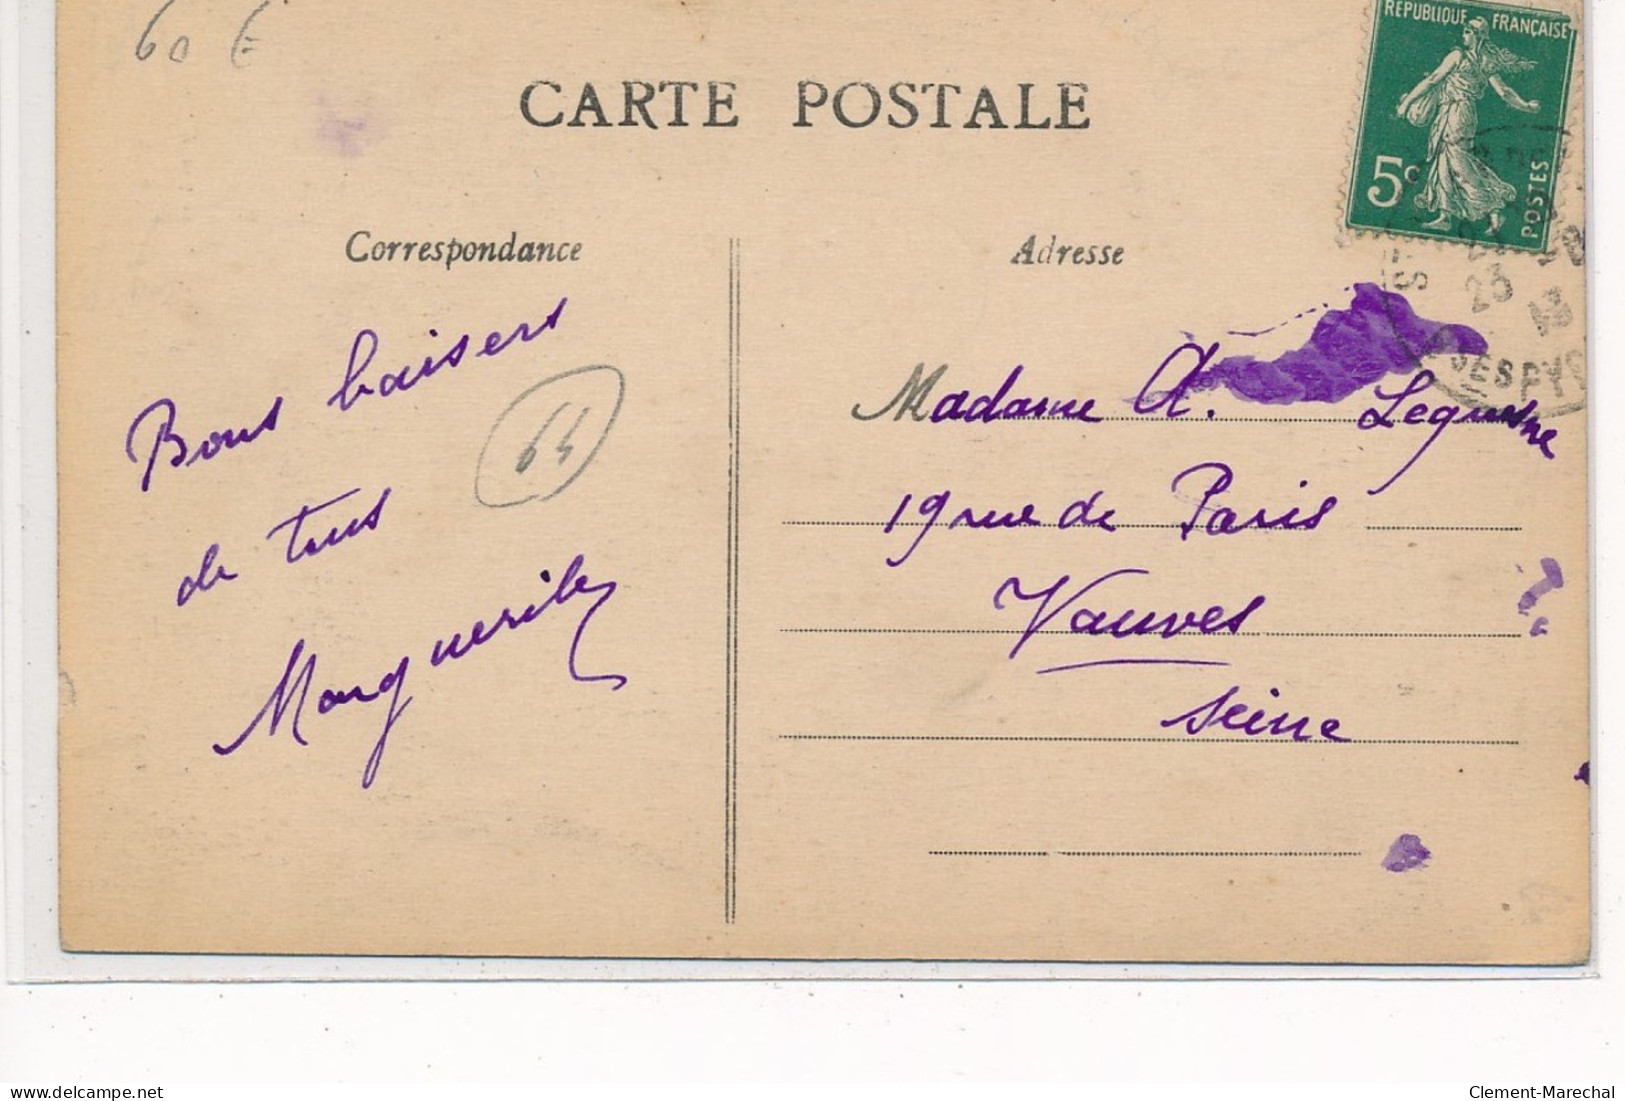 60 €
CARTE POSTALE
REPUBLIQUE FRANÇAISE
5c
POSTES
Correspondance
Adresse
23
Bons baisers
de tous
Marguerite
64
Madame A. Lequesne
19 rue de Paris
Vauves
Seine
delcampe.net
Clement-Marechal